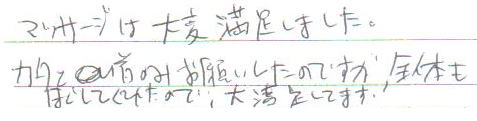 マッサージは大変満足しました。
カタと首のみお願いしたのですが、全体も
ほぐしてくれたので、大満足してます。